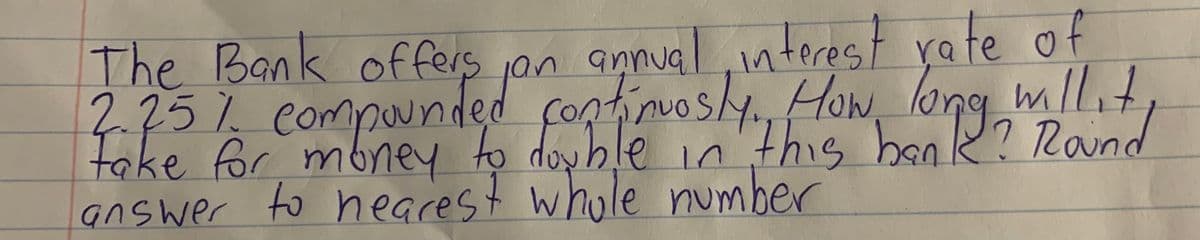 The Bank offers an annual interest rate of
2.25% compounded continuosly. How long will it
take for money to double in this bank? Round
answer to nearest whole number